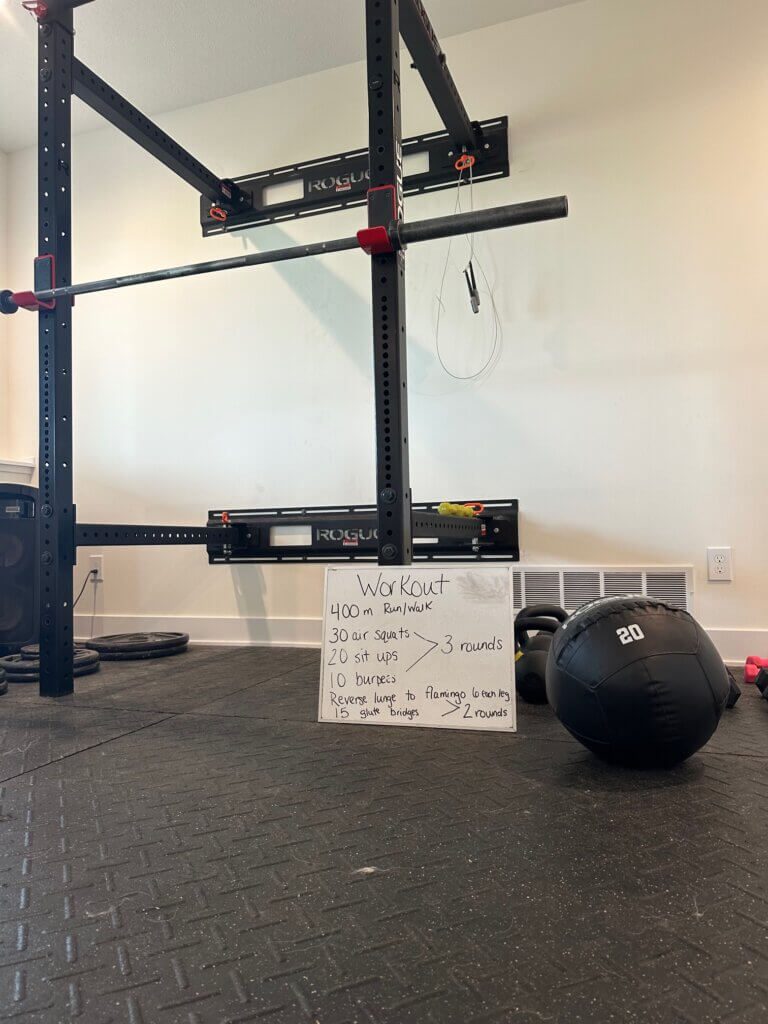 ROGUE
ROGUE
Workout
400 m Run/Walk
30 air squats
20 sit ups > 3 rounds
10 burpees
Reverse lunge to flamingo 6 each leg
15 glute bridges > 2 rounds
20